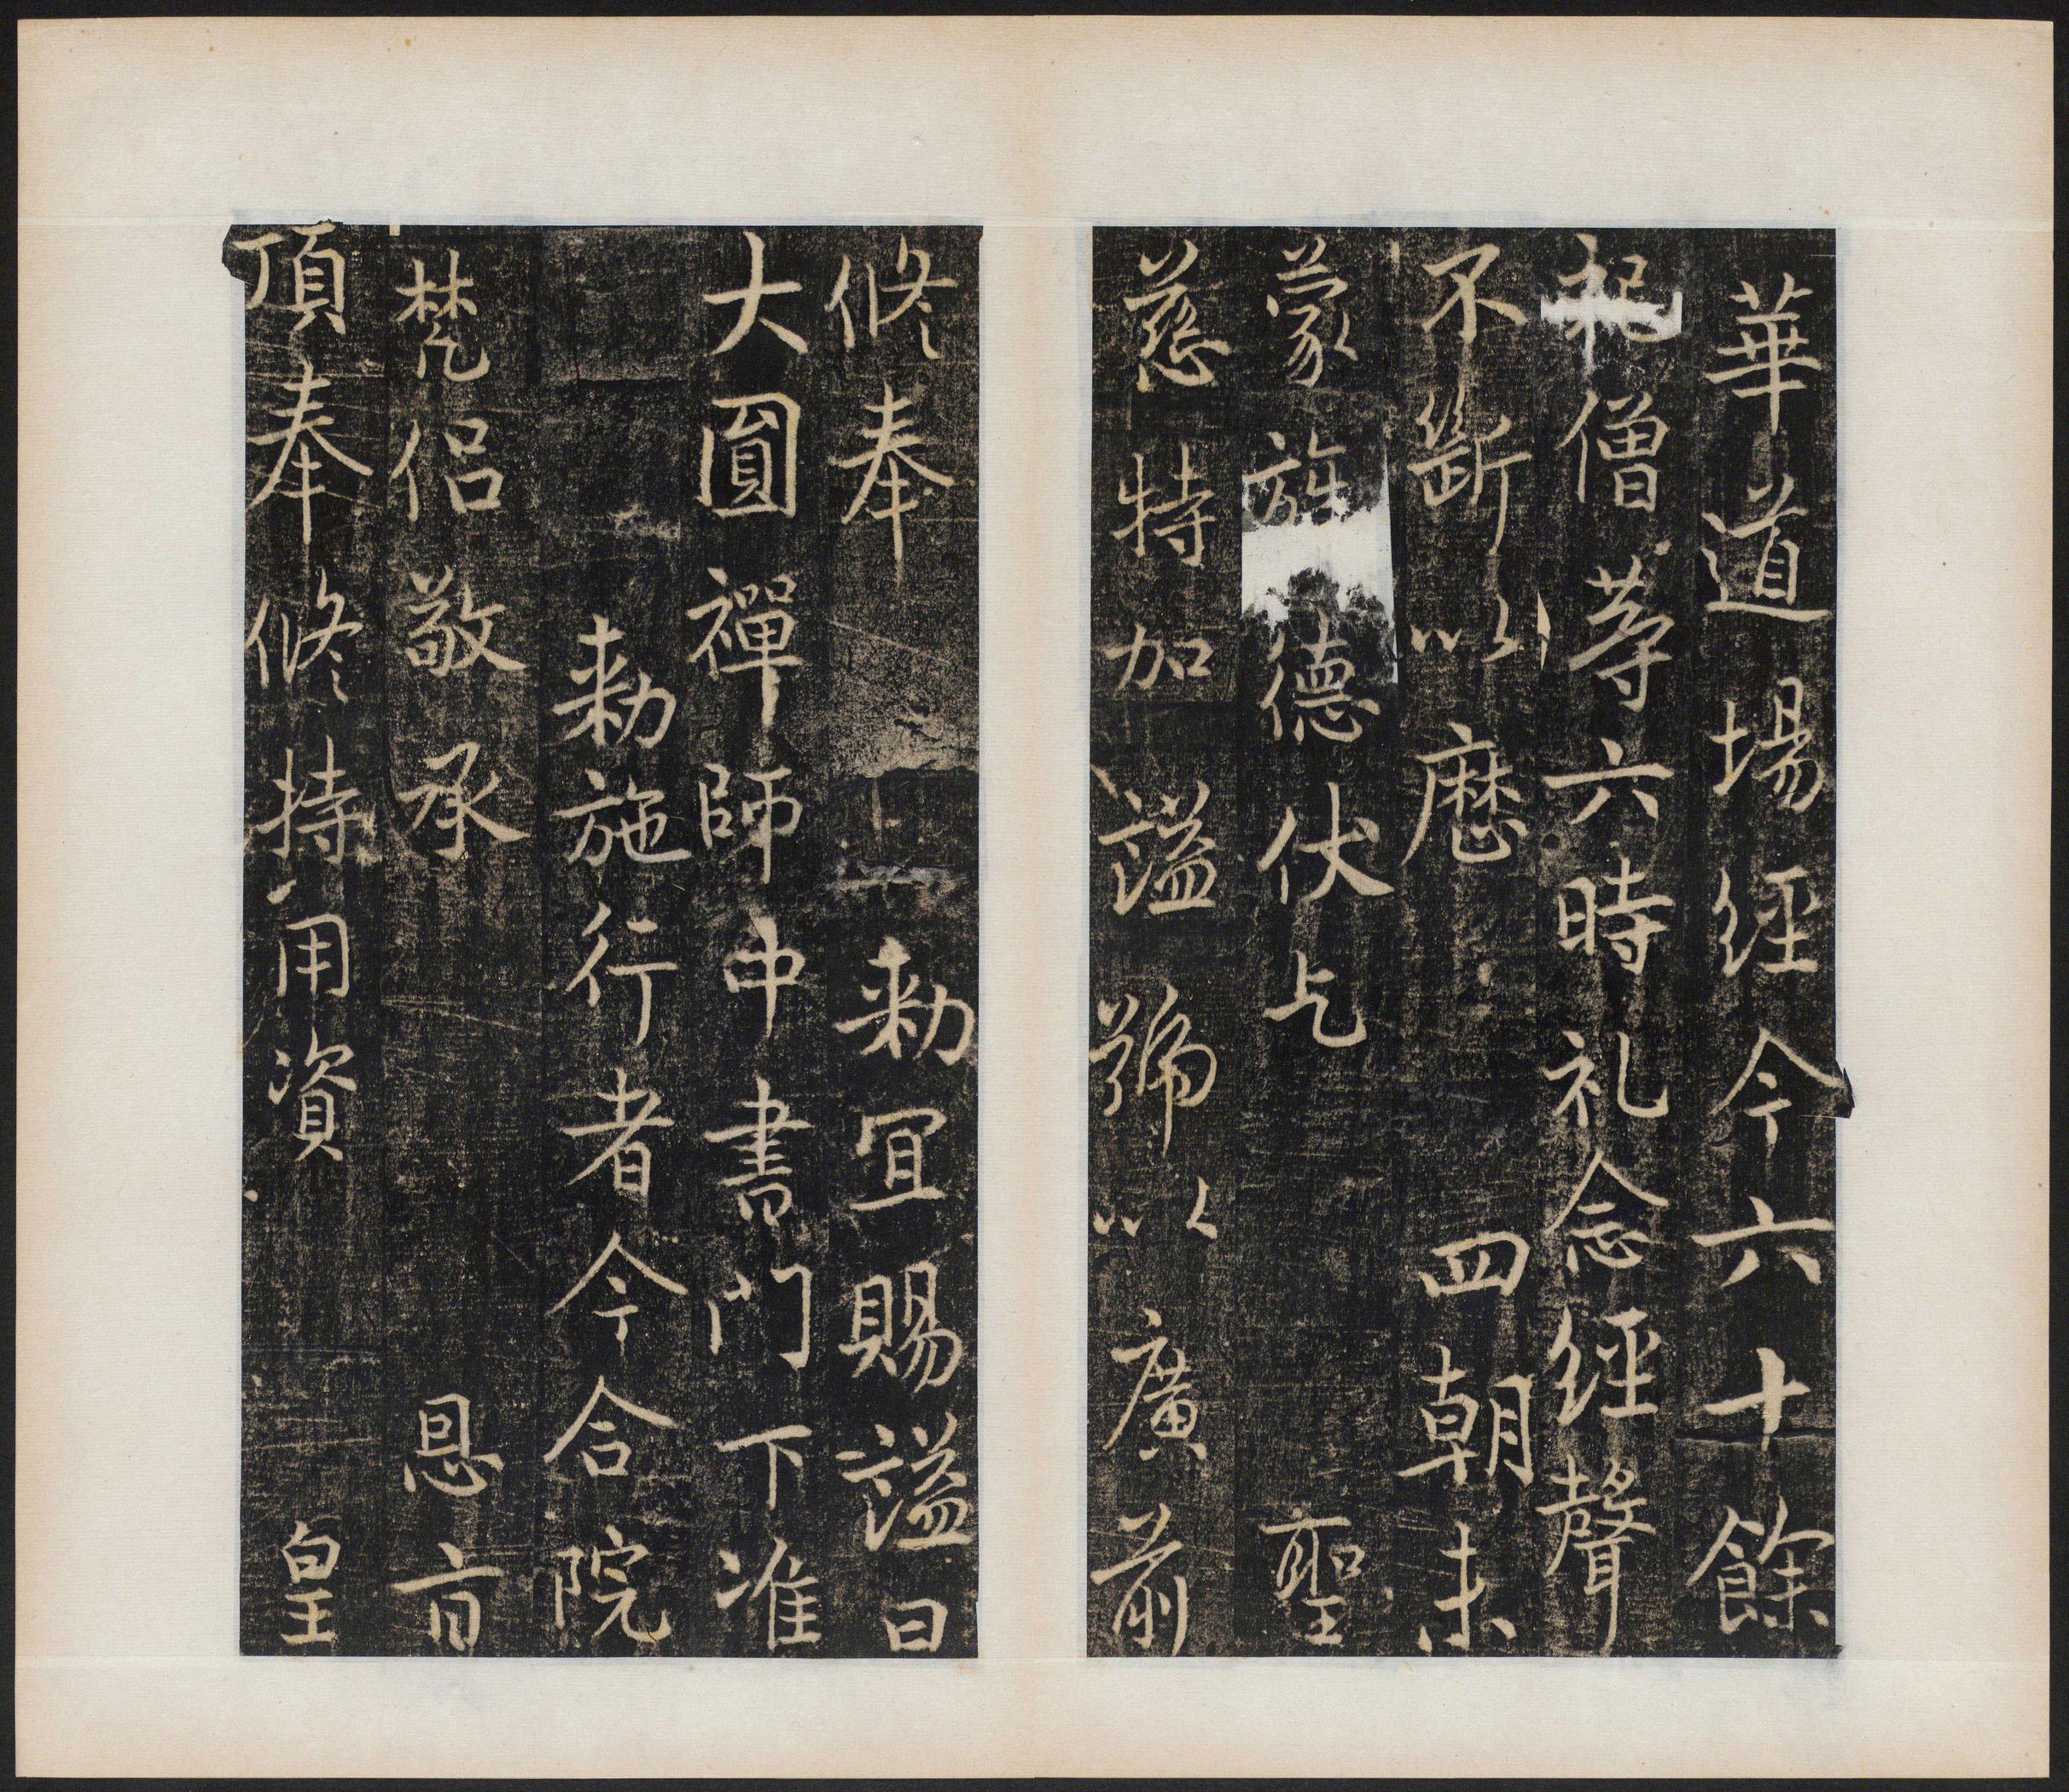 華道場經今六十餘
祀僧等六時礼念經聲
不斷以歷四朝未
蒙旌德伏乞聖
慈特加謚號以廣前
修奉勅宜賜謚曰
大圓禪師中書門下准
勅施行者今合院
梵侶敬承恩旨
頂奉修持用資皇